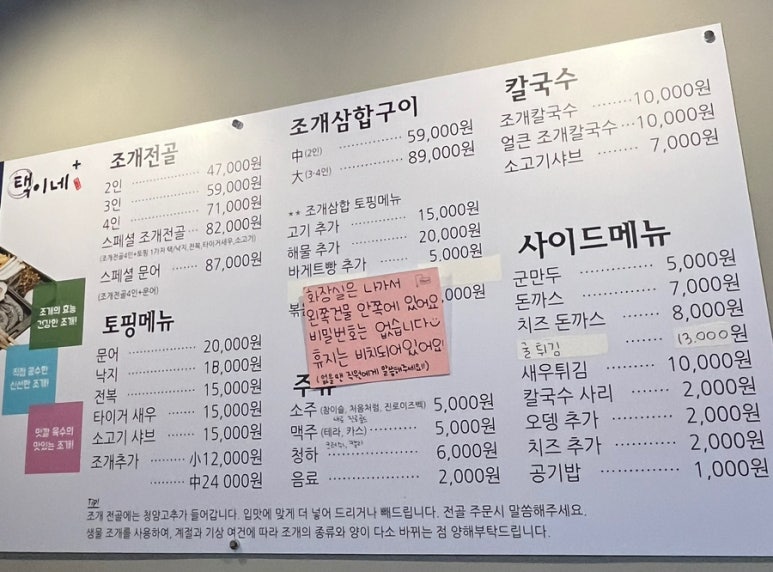 택이네
조개전골
2인 47,000원
3인 59,000원
4인 71,000원
스페셜 조개전골 82,000원
(조개전골4인+토핑 1가지 택/낙지,전복,타이거새우,소고기)
스페셜 문어 87,000원
(조개전골4인+문어)
토핑메뉴
문어 20,000원
낙지 18,000원
전복 15,000원
타이거 새우 15,000원
소고기 샤브 15,000원
조개추가 小12,000원
中24 000원
조개의 효능
건강한 조개!
직접 공수한
신선한 조개!
맛깔 육수의
맛있는 조개!
조개삼합구이
中 (2인) 59,000원
大 (3-4인) 89,000원
** 조개삼합 토핑메뉴
고기 추가 15,000원
해물 추가 20,000원
바게트빵 추가 5,000원
볶 ,000원
화장실은 나가서
왼쪽건물 안쪽에 있어요
비밀번호는 없습니다
휴지는 비치되어있어요!
(없을땐 직원에게 말씀해주세요!!)
주류
소주 (참이슬, 처음처럼, 진로이즈백) 5,000원
맥주 (테라, 카스) 5,000원
청하 6,000원
음료 2,000원
칼국수
조개칼국수 10,000원
얼큰 조개칼국수 10,000원
소고기샤브 7,000원
사이드메뉴
군만두 5,000원
돈까스 7,000원
치즈 돈까스 8,000원
굴튀김 13,000원
새우튀김 10,000원
칼국수 사리 2,000원
오뎅 추가 2,000원
치즈 추가 2,000원
공기밥 1,000원
Tip!
조개 전골에는 청양고추가 들어갑니다. 입맛에 맞게 더 넣어 드리거나 빼드립니다. 전골 주문시 말씀해주세요.
생물 조개를 사용하여, 계절과 기상 여건에 따라 조개의 종류와 양이 다소 바뀌는 점 양해부탁드립니다.